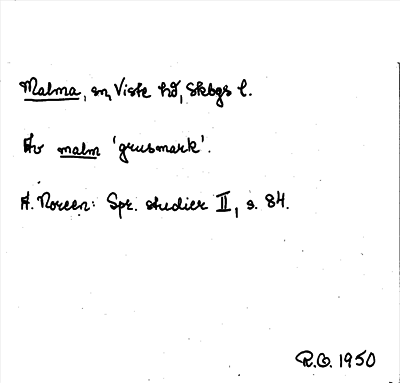 Malma, sn, Viste hd, Skbgs l.
Av malm 'grusmark'.
A. Noreen: Spr. studier II, s. 84.
R.O. 1950